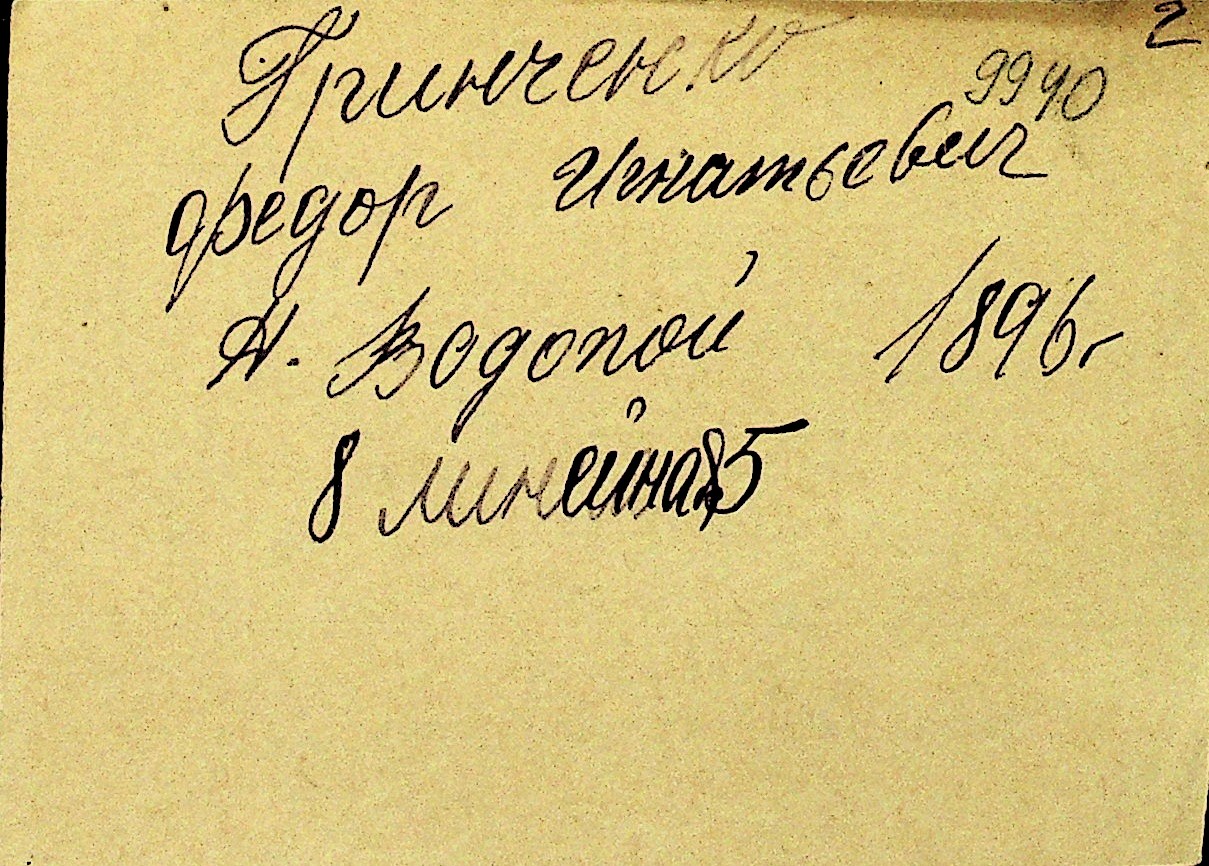 2
Гринченко
9940
Федор Игнатьевич
Н. Водопой 1896г
8 линейная 5